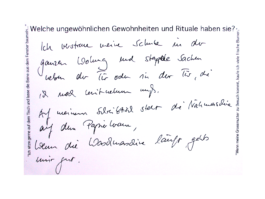 Welche ungewöhnlichen Gewohnheiten und Rituale haben sie?
Ich verstreue meine Schuhe in der
ganzen Wohnung und stapele Sachen
neben der Tür oder in der Tür, die
ich noch mitnehmen muß.
Auf meinem Schreibtisch steht die Nähmaschine
auf dem Papierkram,
Wenn die Waschmaschine läuft, gehts
mir gut.